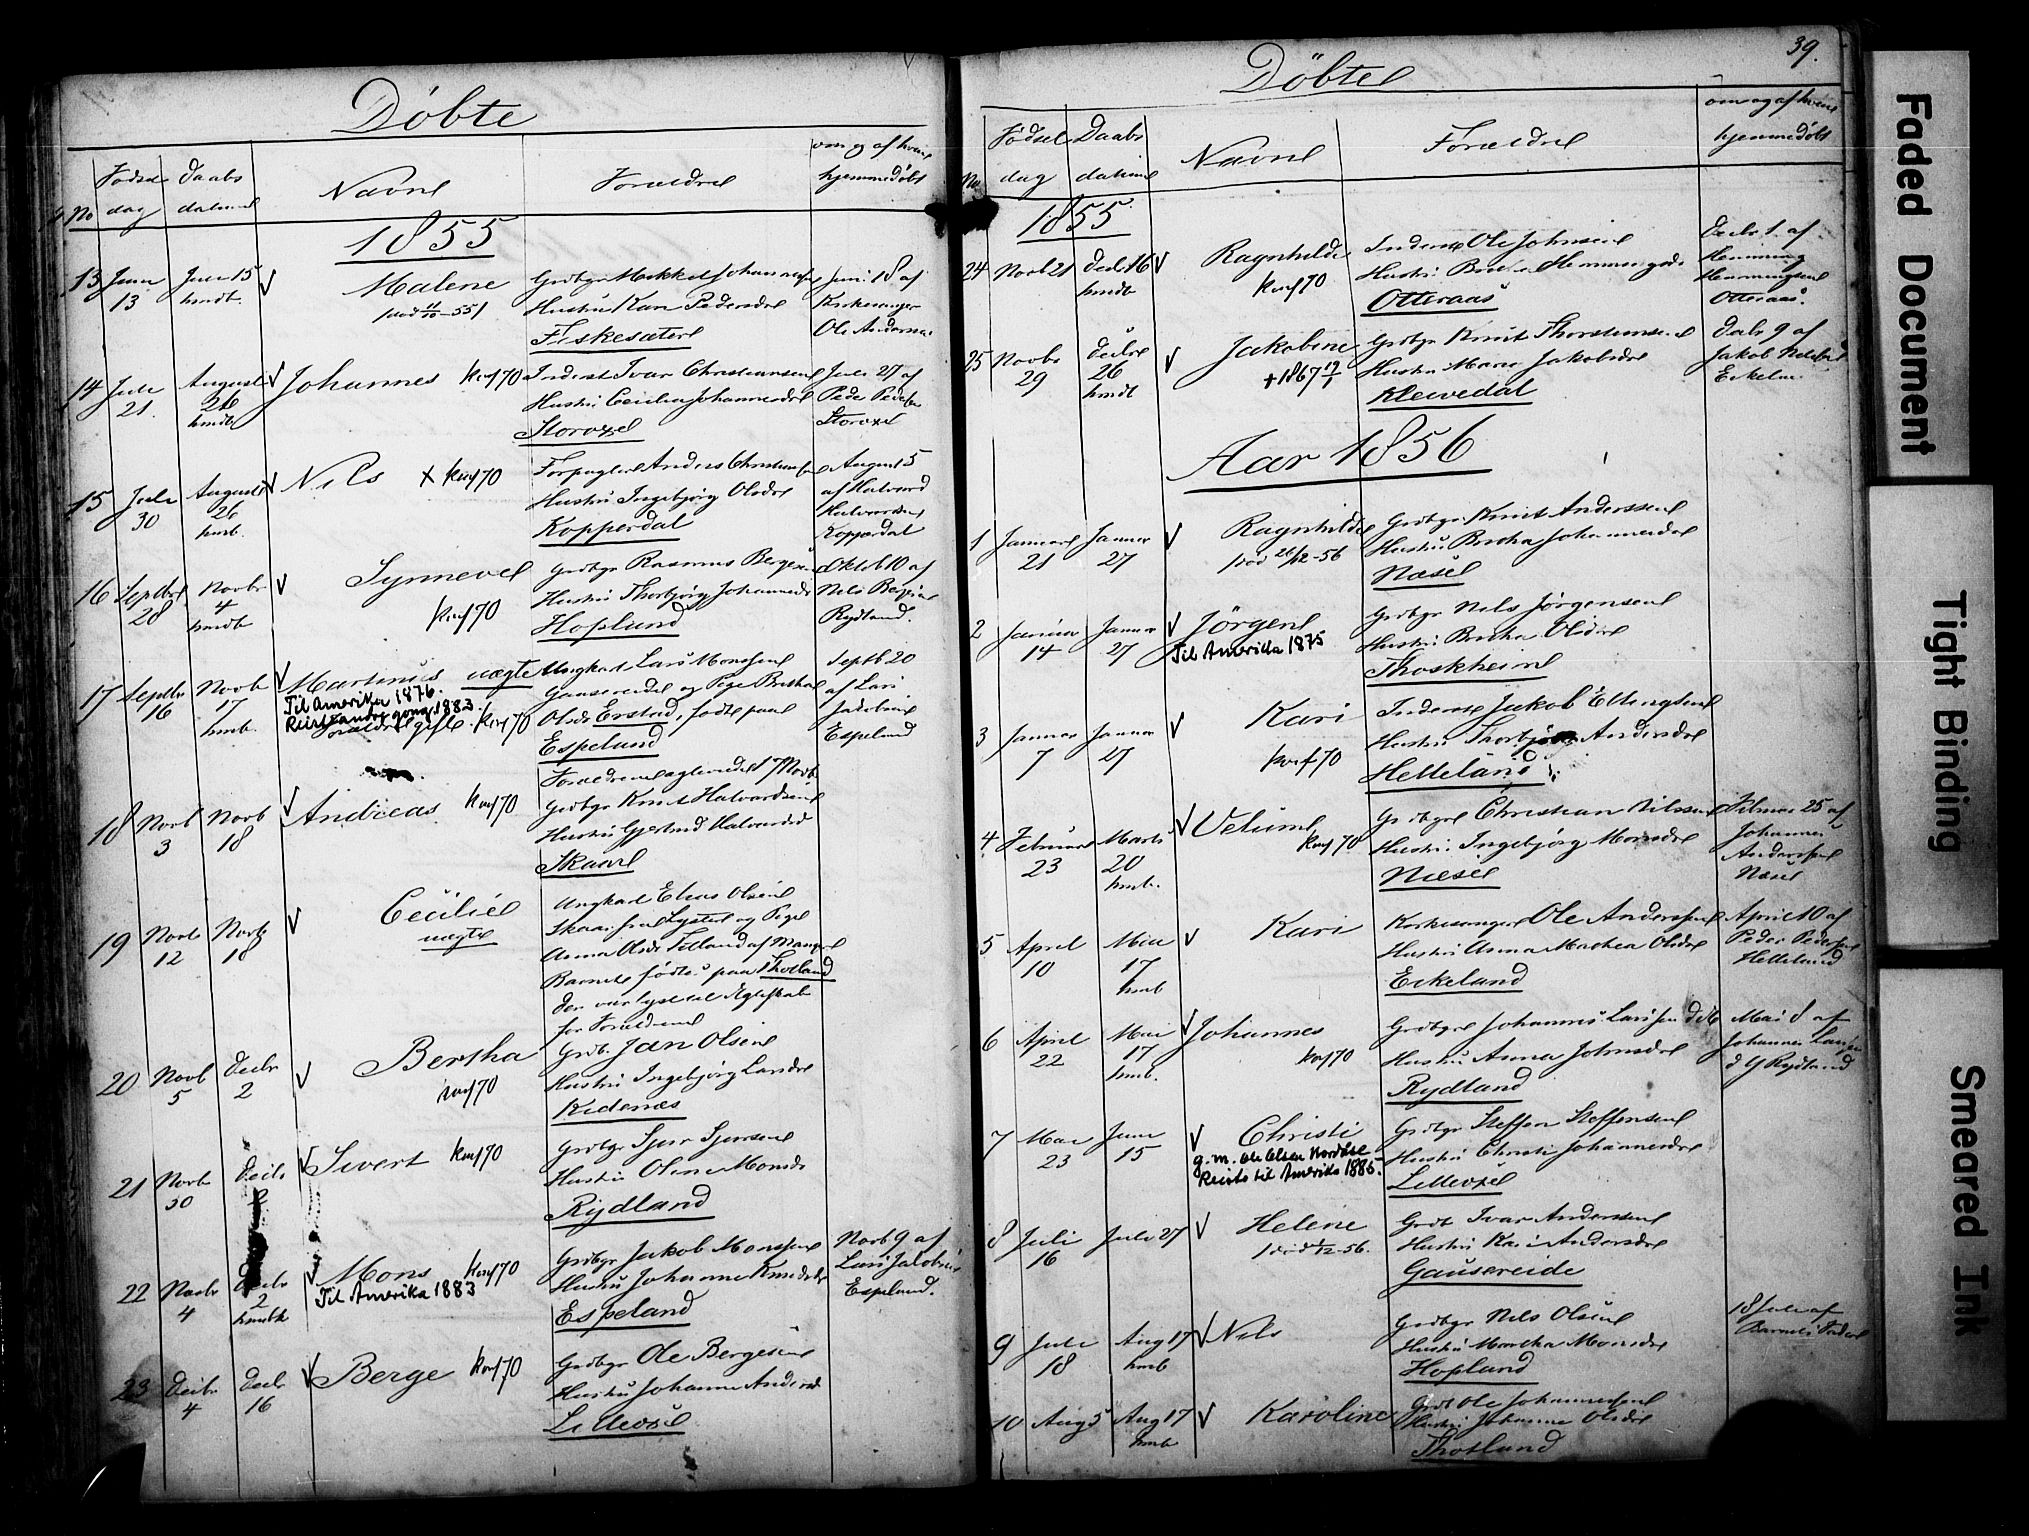 Døbte
No
Fødsels
dag
Daabs
datum
Navne
Forældre
om og af hvem
hjemmedøbt
1855
13 Juni 13
Juli 15
hmdt.
Malene
Grdbgr Mikkel Johannes
Hustru Kari Pedersdr
Fiskesæter
Juni 18 af
Kirkesanger
Ole Anderse
14 Juli 21.
August 26
hmdt
Johannes konf 70
Inderst Ivar Christiansen
Hustru Cecilia Johannesdr
Storoxel
Juli 27 af
Peder Peders
Storoxel
15 Juli 30
August 26
hmb.
Nils x konf 70
Forpagter Anders Christians
Hustru Ingebjørg Olsdr
Kopperdal
August 5
af Halvord
Halvordsen
Kopperdal
16 Septbr 28
Novbr 4
hmdt
Synneve
konf 70
Grdbgr Rasmus Bergesen
Hustru Thorbjørg Johannesdr
Hopland
Oktob 10 af
Nels Bergsen
Rydland.
17 Septbr 16
Novb 17
hmb.
Martinus uægte
Til Amerika 1876.
Reist andre gong 1883.
Forældre gifte. konf 70
Ungkarl Lars Monsen
Gausereidet og Pige Brithe
Olsdr Erstad, født paa
Espeland
Forældrene agtevidet 17 Novb.
Septb 20
af Lars
Jakobsen
Espeland
18 Novb 3
Novb 18
Andreas konf 70
Grdbgr Knut Halvordsen
Hustru Gjertrud Halvordsd
Skaar
19 Novb 12
Novb 18
Cecilie
uægte
Ungkarl Elias Olsen
Skaar fra Lyster og Pige
Anna Olsdr Totland af Manger
Barnet født paa Thotland
Der var lyst til Ægteskab
for Forældrene
20 Novb 5
Decbr 2
Bertha
konf 70
Grdb. Jan Olsen
Hustru Ingebjørg Larsdr
Kidenæs
21 Novb 30
Decbr 2
Sivert konf 70
Grdbgr Sjur Sjursen
Hustru Oline Monsdr
Rydland
22 Novbr 4
Decbr 2
hmdt
Mons konf 70
Til Amerika 1883
Grdbgr Jakob Monssen
Hustru Johanne Knudsdr
Espeland
Novb 9 af
Lars Jakobsen
Espeland.
23 Decbr 4
Decbr 16
Berge konf 70
Grdbgr Ole Bergesen
Hustru Johanne Andersd
Lilleoxel
39.
Døbte
No
Fødsel
dag
Daabs
datum
Navne
Forældre
om og af hvem
hjemmedøbt
1855
24 Novb 21
Decb 16
hmdt
Ragnhilde
konf 70
Inderst Ole Johnsen
Hustru Hemmingsdr
Otteraas
Decbr 1. af
Hemming
Hemmingsen
Otteraas.
25 Novbr 29
Decbr 26
hmdt
Jakobine
+1867 17/1
Grdbgr Knut Thorstensen
Hustru Marie Jakobsdr
Kleivedal
Decb 9 af
Jakob
Aar 1856
1 Januar 21
Januar 27
Ragnhilde
død 26/12-56
Grdbgr Knut Anderssen
Hustru Brithe Johannesdr
Næse
2 Januar 14
Januar 27
Jørgen
Til Amerika 1875
Grdbgr Nils Jørgensen
Hustru Brithe Olsdr
Thoskheim
3 Januar 7
Januar 27
Kari
konf 70
Inderst Jakob Ellingsen
Hustru Thorbjør Andersdr
Helleland
4 Februar 23
Marts 20
hmb.
Velum
konf 70
Grdbgr Christian Nilssen
Hustru Ingebjørg Monsdr
Næse
Februar 25 af
Johannes
Anderssen
Næse
5 April 10
Mai 17
hmb
Kari
Kirkesanger Ole Anderssen
Hustru Anna Mathea Olsdr
Eikeland
April 10 af
Peder Pedersen
Helleland
6 April 22
Mai 17
hmb.
Johannes
konf 70
Grdbgr Johannes Larssen d Æ
Hustru Anna Johnsdr
Rydland
Mai 8 af
Johannes Larssen
d Y Rydland
7 Mai 23
Juni 15
Christi
g.m. Ole Olsen Nordøse
Reiste til Amerika 1885.
Grdbgr Steffen Steffensen
Hustru Christi Johannesdr
Lilleoxel
8 Juli 16
Juli 27
Helene
død 1/12-56.
Grdb Ivar Anderssen
Hustru Kari Andersdr
Gausereide
9 Juli 18
Aug 17
hmb
Nils
Grdbgr Nils Olsen
Hustru Martha Monsdr
Hopland
18 Juli af
Barnets Fader
10 Aug 5
Aug 17
hmb
Karoline
Grdb Ole Johannessen
Hustru Johanne Olsdr
Thotland
Faded Document
Tight Binding
Smeared Ink